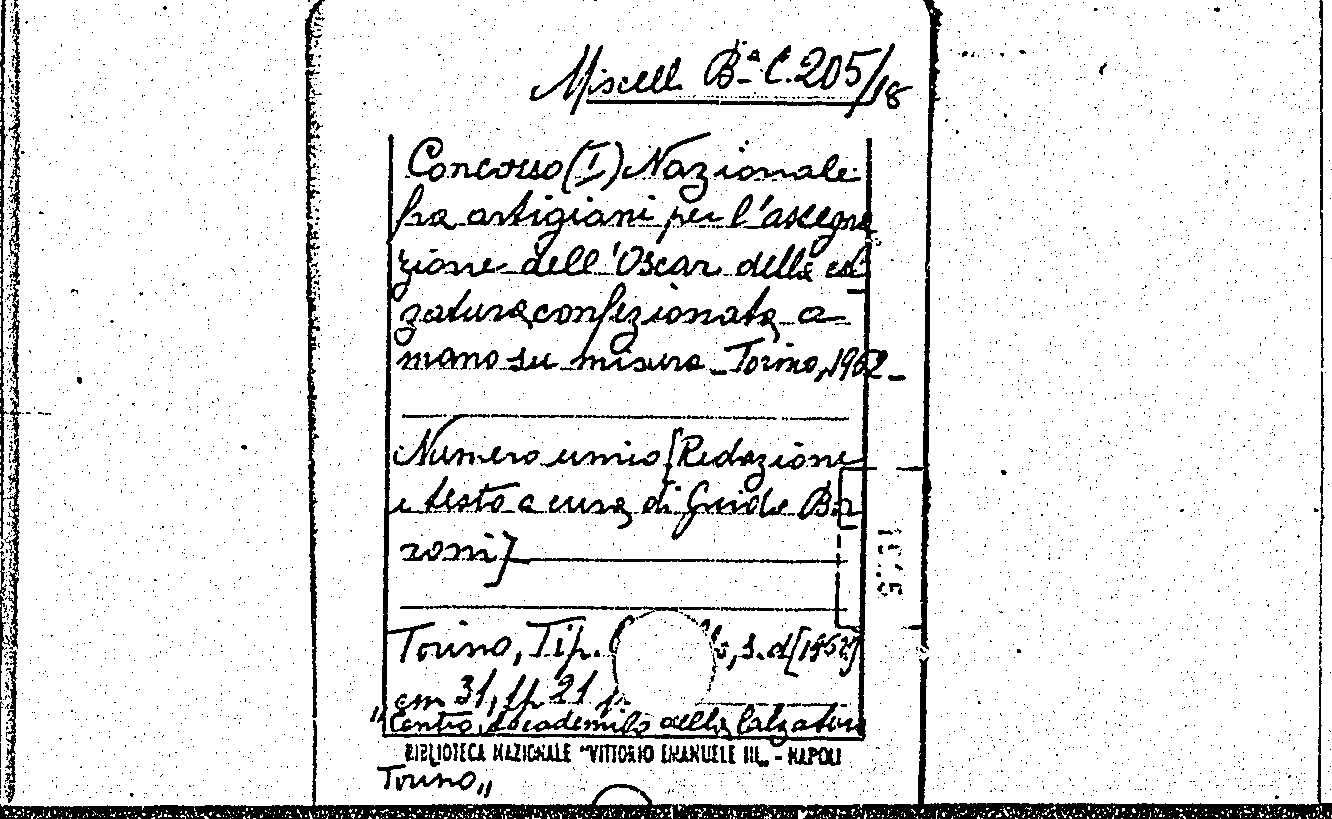 Miscell. Bª C. 205/18
Concorso (I) Nazionale
fra artigiani per l'assegna
zione dell'Oscar della cal
zatura confezionata a
mano su misura - Torino, 1962 -
Numero unico [Redazione
e testo a cura di Guido
roni]
Torino, Tip. s. d. [1962]
cm 31, pp 21
"Centro Accademico della Calzatura
BIBLIOTECA NAZIONALE "VITTORIO EMANUELE III" - NAPOLI
Torino"